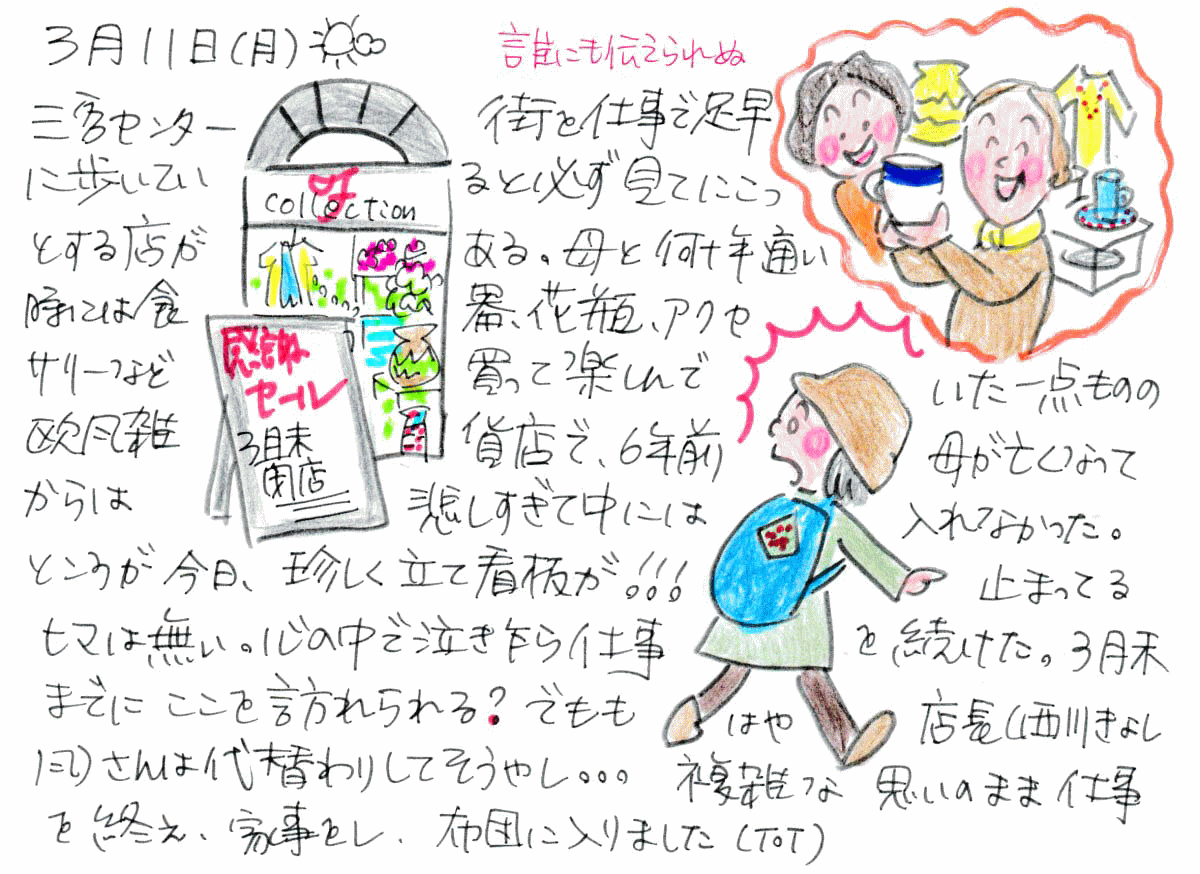 3月11日(月)
誰にも伝えられぬ
三宮センター 街を仕事で足早
に歩いてい ると必ず見てにこっ
とする店が ある。母と何十年通い
時には食 器、花瓶、アクセ
サリーなど 買って楽しんで いた一点ものの
欧風雑 貨店で、6年前 母が亡くなって
からは 悲しすぎて中には 入れてなかった。
ところが今日、珍しく立て看板が!!! 止まってる
ヒマは無い。心の中で泣き乍ら仕事 を続けた。3月末
までにここを訪れられる?でもも はや 店長(西川きよし
風)さんは代替わりしてそうやし... 複雑な 思いのまま仕事
を終え、家事をし、布団に入りました(ToT)
of
collection
感謝
セール
3月末
閉店